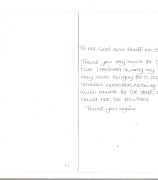 To Mr Goel and Staff on S
Thank you very much for t
care I received during my
day care surgery for a ca
removal operation, nothing
much trouble for the staff, I
could not be faulted
Thank you again